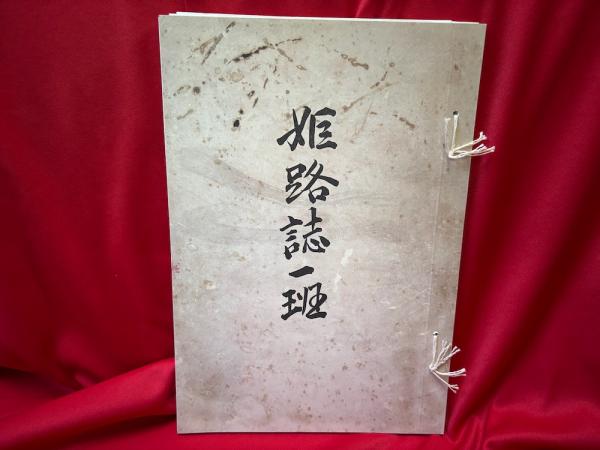 姫路誌一班